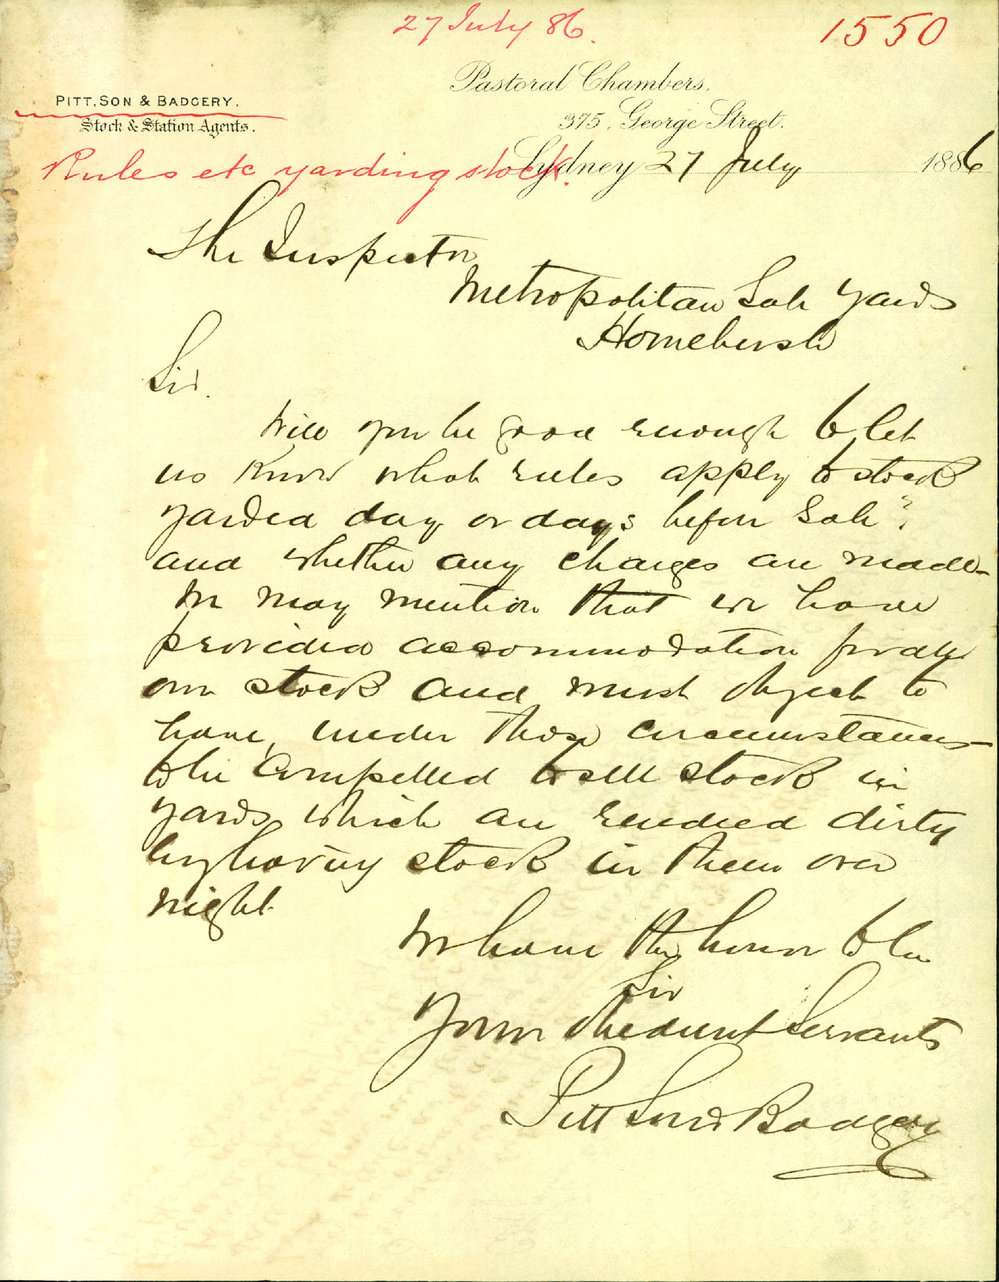 27 July 86.
1550
Pastoral Chambers,
375, George Street.
PITT, SON & BADGERY.
Stock & Station Agents.
Sydney 27 July 1886
Rules etc yarding stock.
The Inspector
Metropolitan Sale Yards
Homebush
Sir.
Will you be good enough to let
us know what rules apply to stock
yarded day or days before Sale?
and whether any charges are made -
We may mention that we have
provided accommodation for all
our stock and must object to
have, under those circumstances
to be compelled to sell stock in
yards which are rendered dirty
by having stock in them over
night.
We have the honor to be
Sir
Your obedient Servants
Pitt Son & Badgery